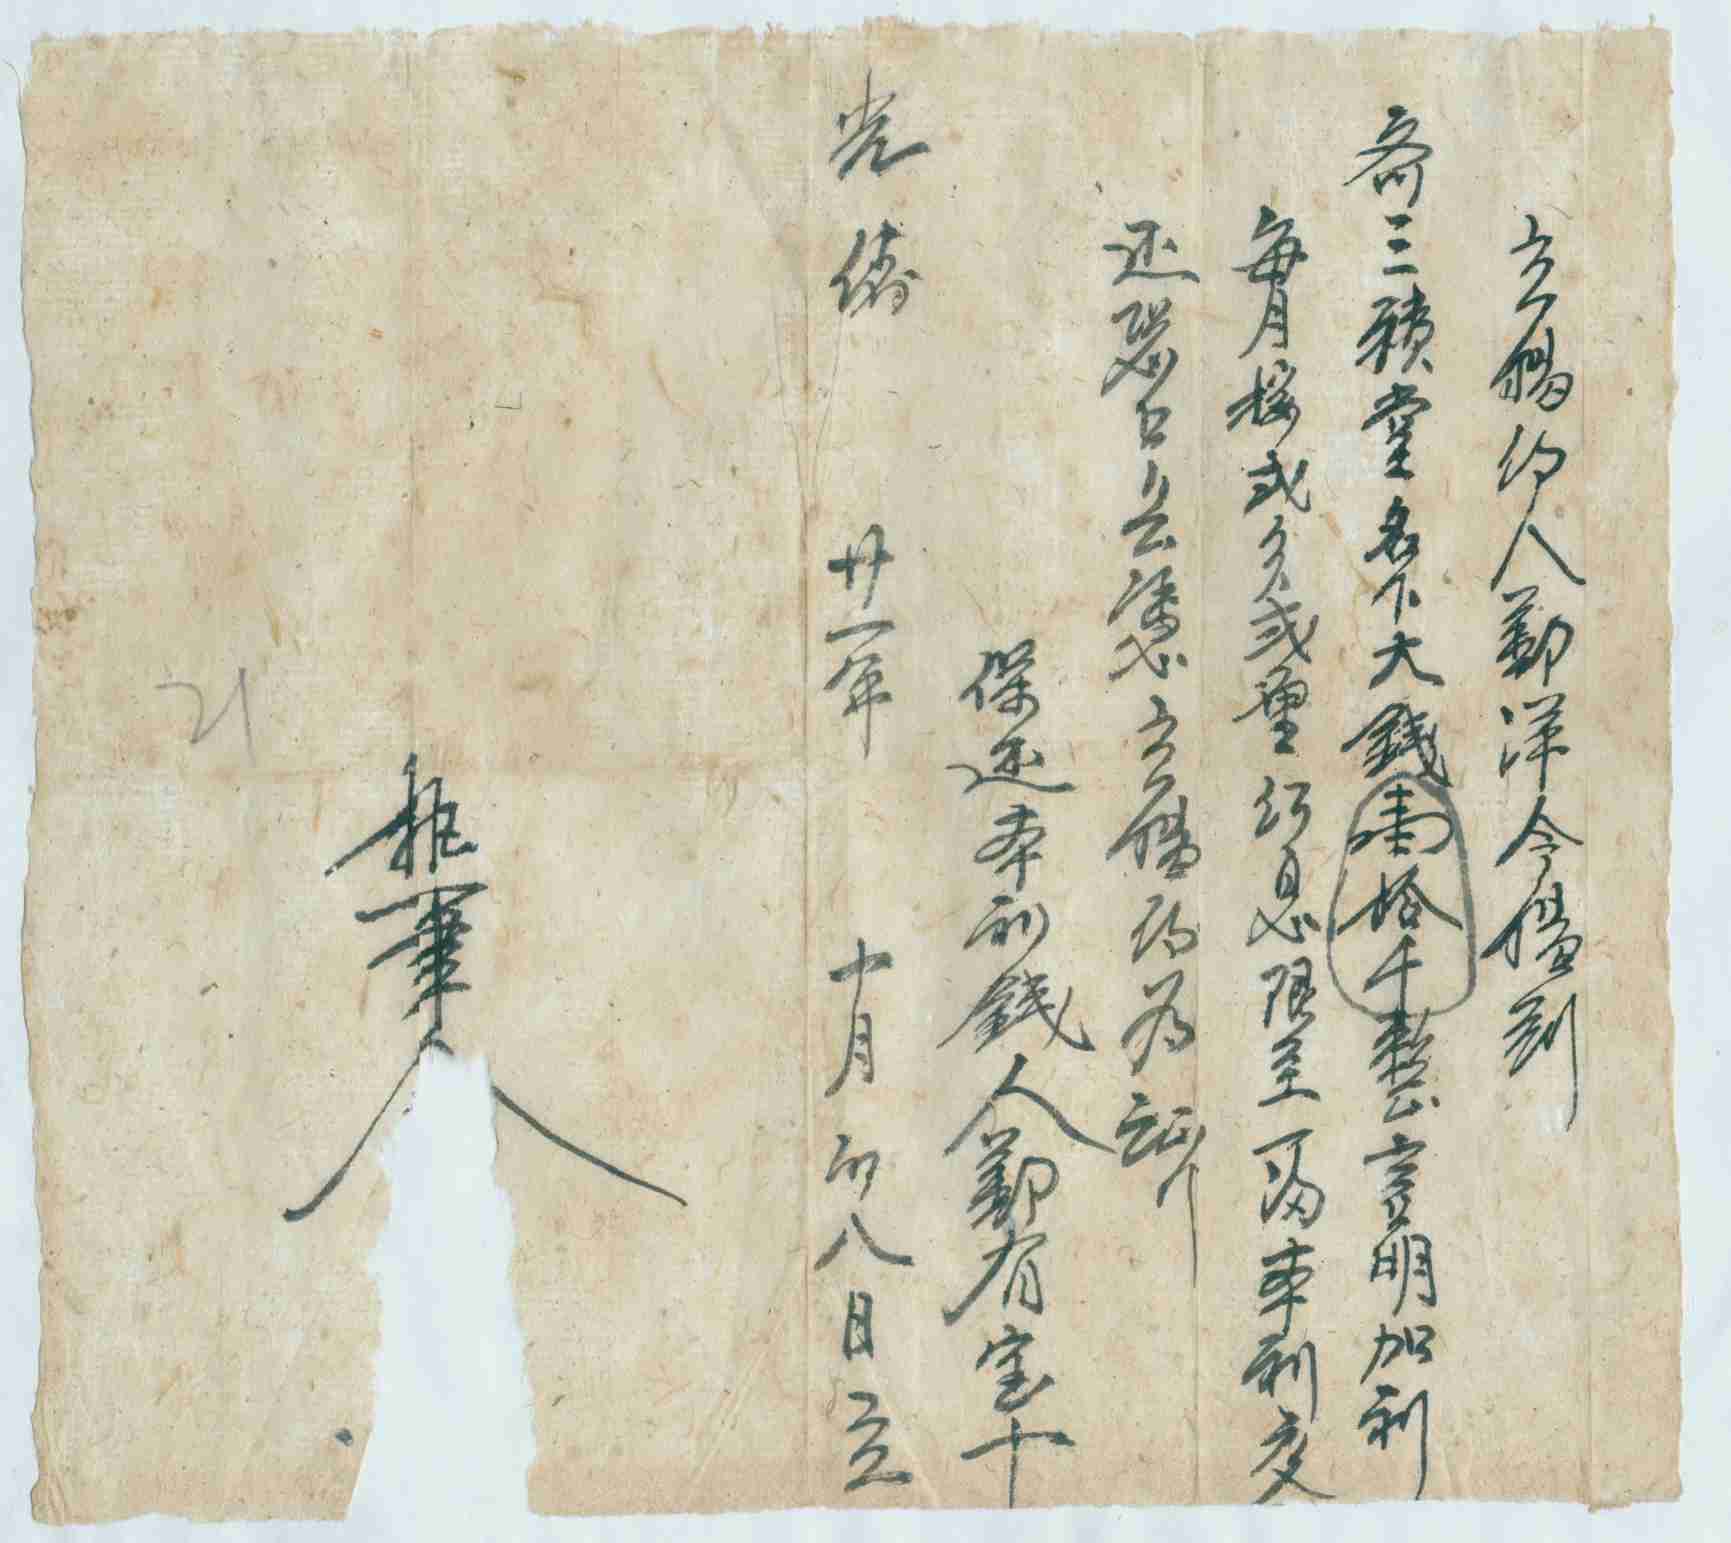 立揭約人鄭洋今揭到
齋三積堂名下大錢拾千整言明加利
每月按式分式厘行息限至一滿本利交
还恐口無憑立揭約為証
保还本利錢人鄭有宝十
光緒廿一年十月初八日立
執筆人
21